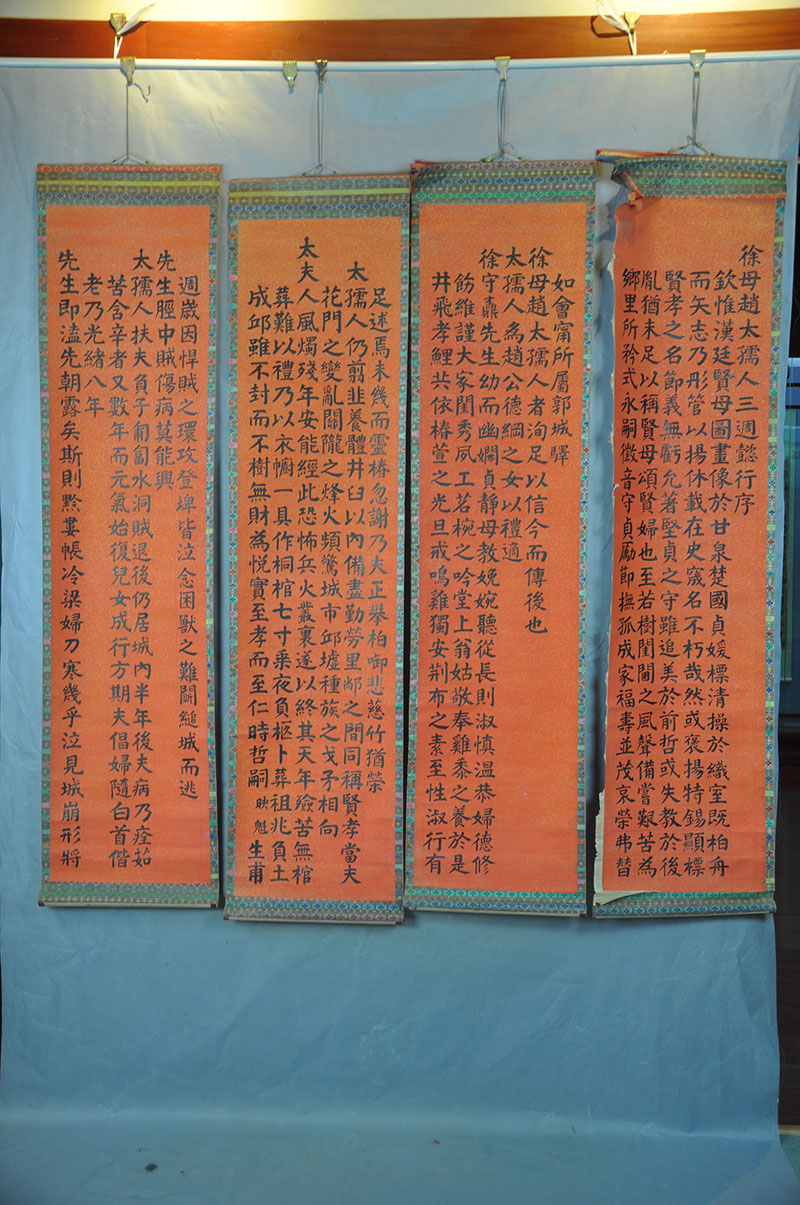 徐母趙太孺人三週懿行序
欽惟漢廷賢母圖畫像於甘泉楚國貞媛標清操於織室既柏舟
而矢志乃彤管以揚休載在史宬名不朽哉然或褒揚特錫顯標
賢孝之名節義無虧允著堅貞之守雖追美於前哲或失教於後
胤猶未足以稱賢母頌賢婦也至若樹閨閫之風聲備嘗艱苦為
鄉里所矜式永嗣徽音守貞勵節撫孤成家福壽並茂哀榮弗替
如會甯所屬郭城驛
徐母趙太孺人者洵足以信今而傳後也
太孺人為趙公德綱之女以禮適
徐守鼐先生幼而幽嫻貞靜母教娩婉聽從長則淑慎溫恭婦德修
飭維謹大家閨秀夙工茗椀之吟堂上翁姑敬奉雞黍之養於是
井飛孝鯉共依椿萱之光旦戒鳴雞獨安荆布之素至性淑行有
足述焉未幾而靈椿忽謝乃夫正攀柏啣悲慈竹猶榮
太孺人仍翦韭養體井臼以內備盡勤勞里鄰之間同稱賢孝當夫
花門之變亂關隴之烽火頻驚城市邱墟種族之戈矛相向
太夫人風燭殘年安能經此恐怖兵火叢裏遂以終其天年殮苦無棺
葬難以禮乃以衣櫥一具作桐棺七寸乘夜負柩卜葬祖兆負土
成邱雖不封而不樹無財為悅實至孝而至仁時哲嗣映魁生甫
週歲因悍賊之環攻登埤皆泣念困獸之難鬬縋城而逃
先生脛中賊傷病莫能興
太孺人扶夫負子匍匐水洞賊退後仍居城內半年後夫病乃痊茹
苦含辛者又數年而元氣始復兒女成行方期夫倡婦隨白首偕
老乃光緒八年
先生即溘先朝露矣斯則黔婁帳冷梁婦刀寒幾乎泣見城崩形將